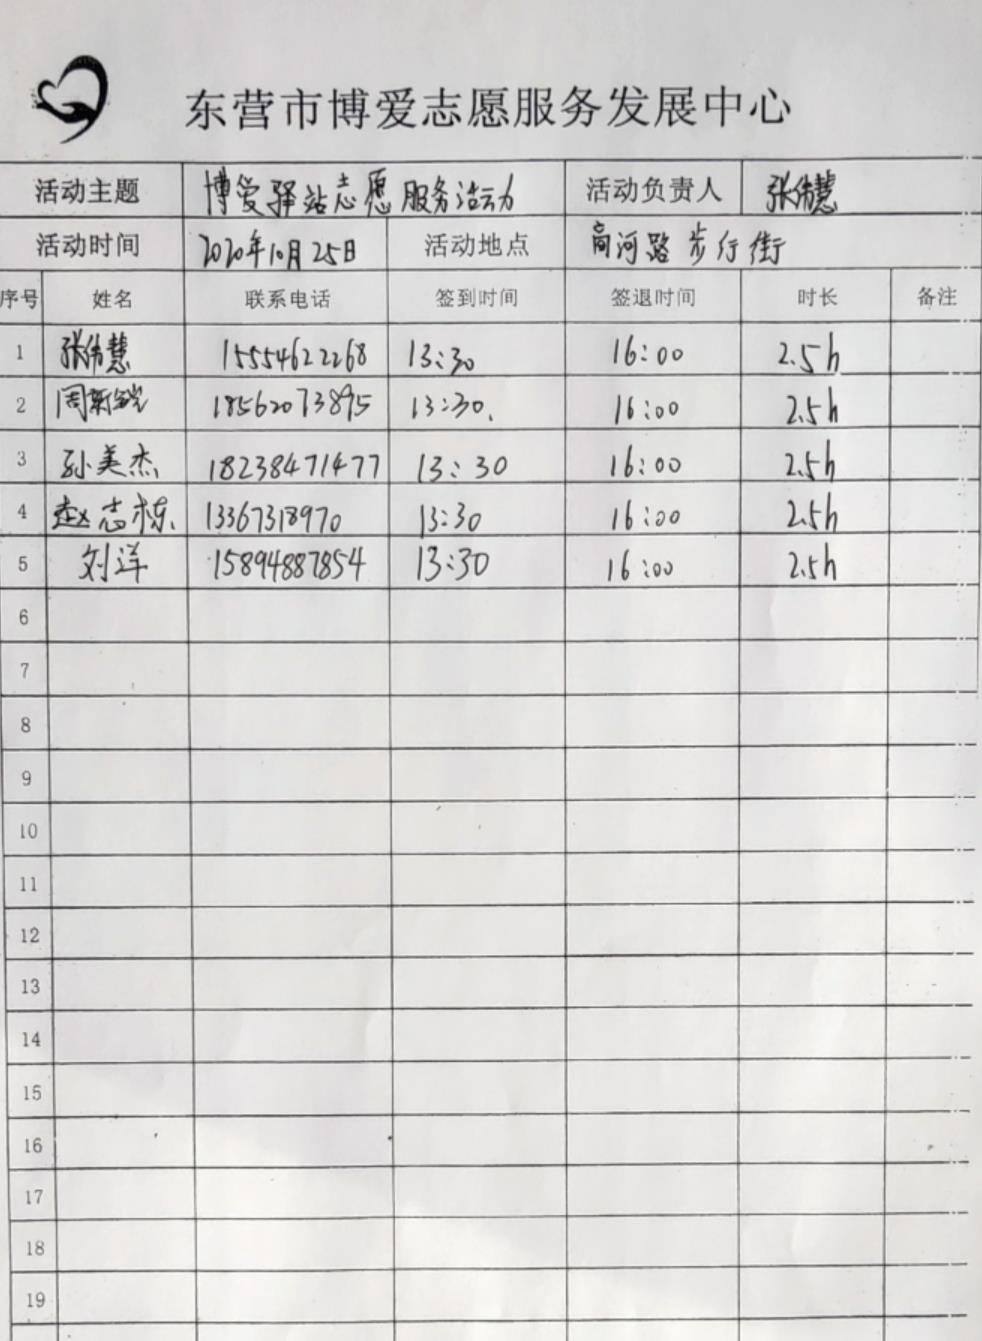 东营市博爱志愿服务发展中心
活动主题 博爱驿站志愿服务活动 活动负责人 张伟慧
活动时间 2020年10月25日 活动地点 商河路步行街
序号 姓名 联系电话 签到时间 签退时间 时长 备注
1 张伟慧 15554622268 13:30 16:00 2.5h
2 周新 18562073895 13:30. 16:00 2.5h
3 孙美杰 18238471477 13:30 16:00 2.5h
4 赵志栋 13367318970 13:30 16:00 2.5h
5 刘洋 15894887854 13:30 16:00 2.5h
6
7
8
9
10
11
12
13
14
15
16
17
18
19